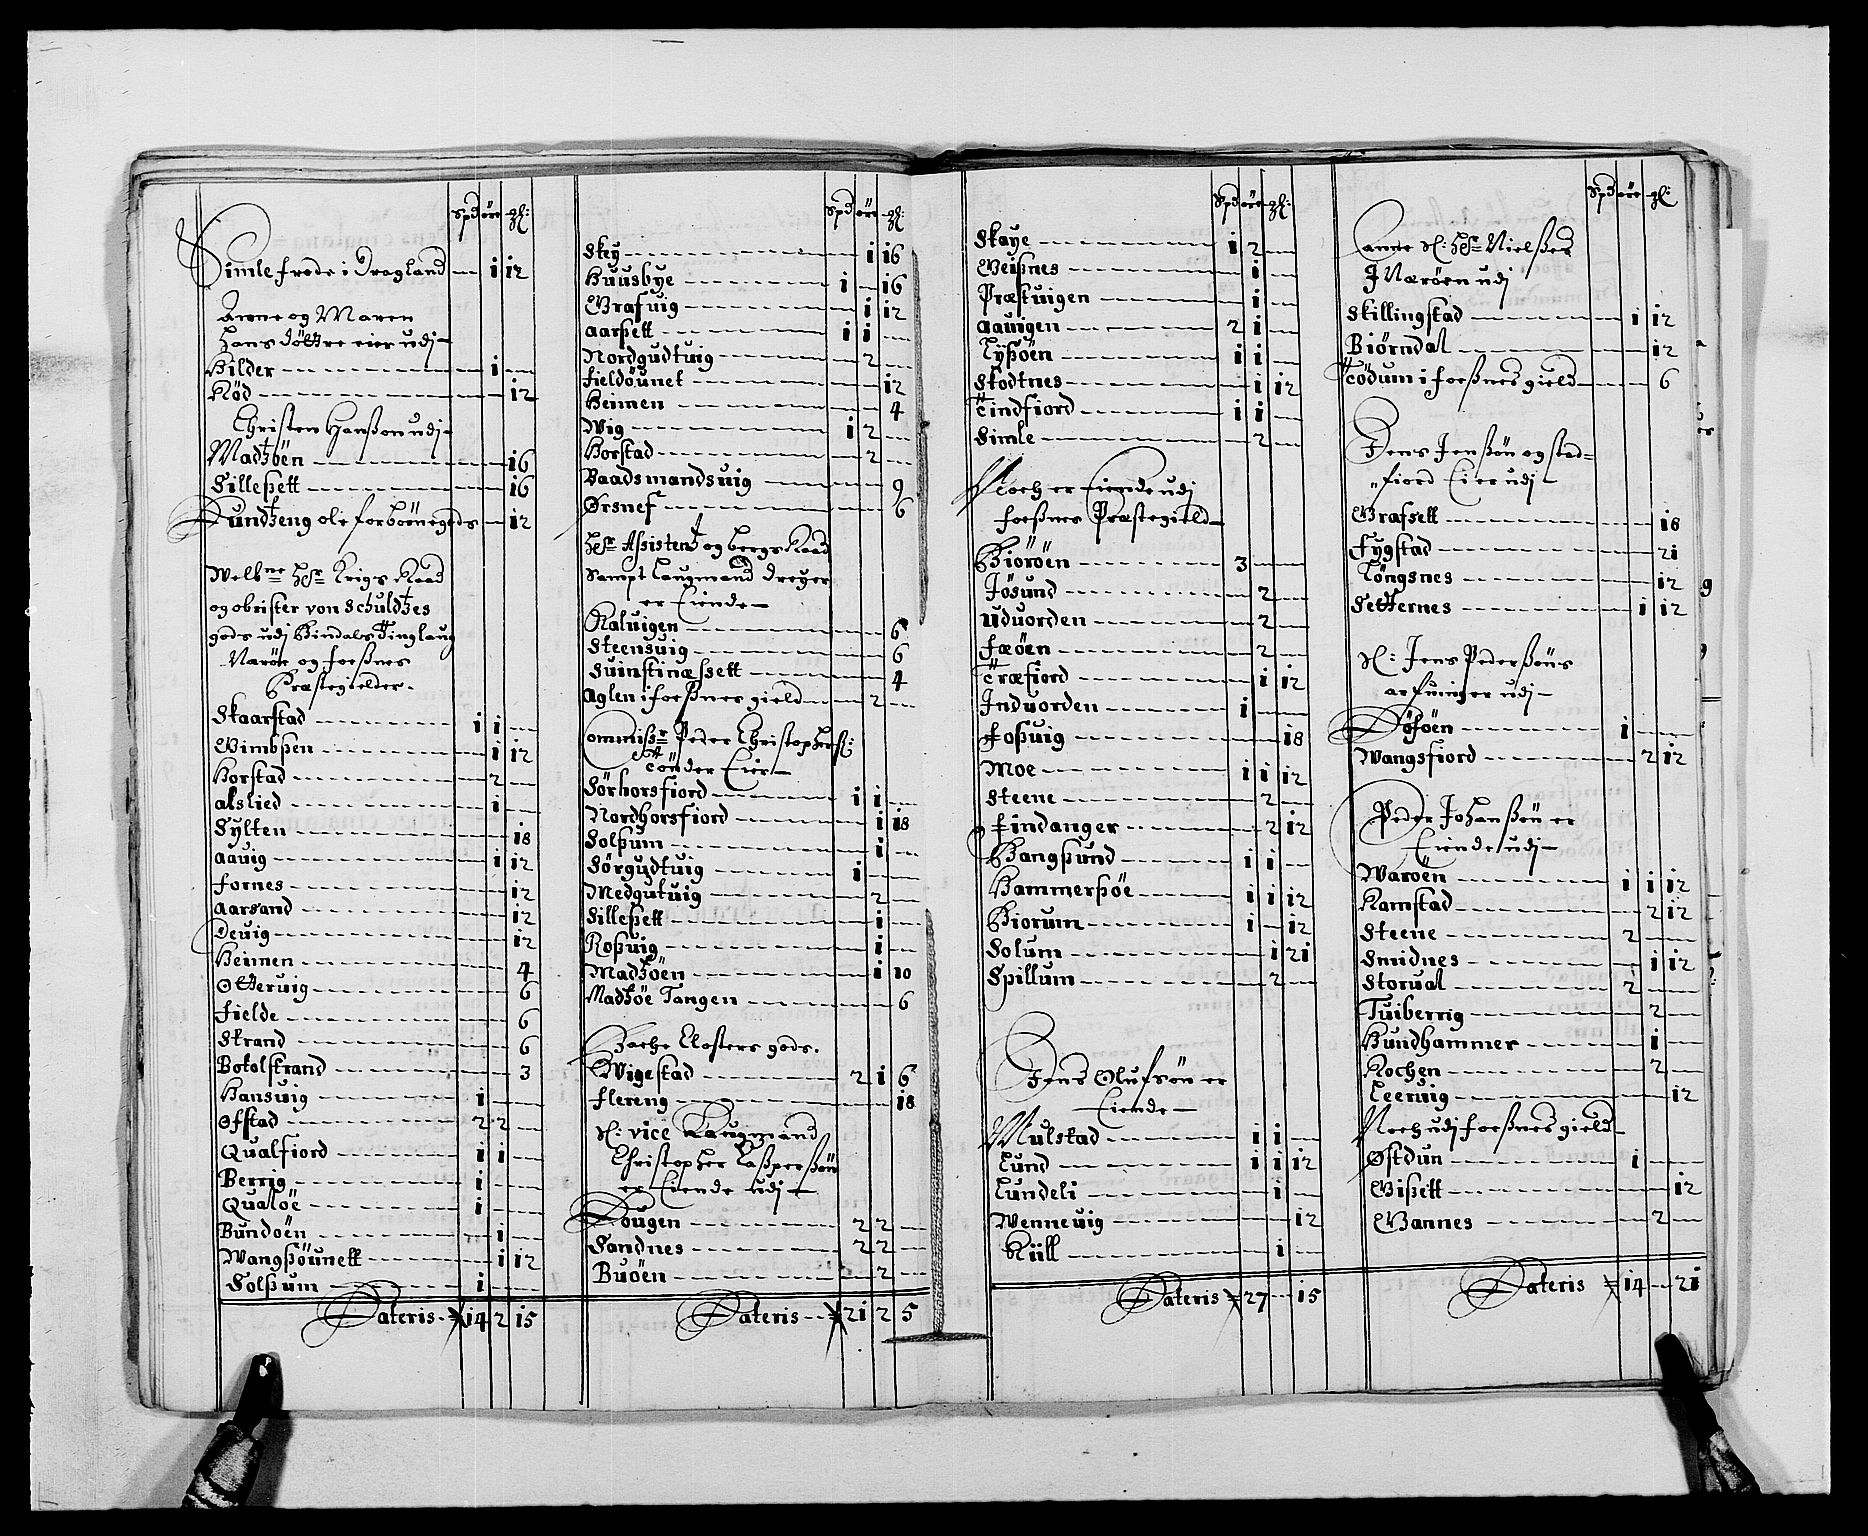 Spd öre gl:
Simle frede i Dragland 1 12
Anne og Maren
Hans döttre eier udj
Hilder 1
Röd 12
Christen Hanßon udj
Madzöen 16
Silleßett 16
Gundzeng ole forboene gods 12
Welbne Hr Krigs Raad
og obrister von Schuldtzes
gods udj Bindals Tinglaug
Naröe og foeßnes
Præstegielder.
Skaarstad 1 1
Gimbßen 1 12
Horstad 2
alslied 1
Sylten 18
aauig 1 12
fornes 12
aarsand 12
Deuig 12
Heimen 4
Otteruig 6
fielde 6
Strand 6
Botolstrand 3
Hansuig 1
Ofstad 2 2
Qualfiord 1 1
Berrig 1
Qualöe 1
Bundöen 1
Wangßöunett 1 12
Solßum 1
Lateris 14 2 15
Spd öre gl:
Skey 1 16
Huusbye 1 16
Grafuig 1 12
aarßett 1 1
Nordgudtuig 2
fieldöunet 12
Heimen 4
Wig 1 2
Horstad 2
Baadsmandsuig 9
Ørsnef 6
Hr Assistentz og bergs Raad
Sampt Laugmand Dreyer
er Eiende
Kaluigen 6
Steensuig 6
Suinstinæssett 4
Aglen i foeßnes gield 2
Commißr Peder Christophersl:
Tönder Eier
Sörhorsfiord 1 1
Nordhorsfiord 1 18
Solßum 1
Sörgudtuig 1
Medgutuig 2
Silleßett 1
Roßuig 1
Madzöen 1 10
Madzöe Tangen 6
Bache Closters gods.
Wigestad 2 1 6
flereng 18
Sl: vice Laugmand
Christopher Caßperßön
er Eiende udj
Sougen 2 2
Sandnes 2 2
Buöen 2
Lateris 21 2 5
Spd öre gl:
Skaye 1 2
Geißnes 1
Præstuigen 1
Aauigen 2 1
Lyßöen 1 1
Skodtnes 1 12
Tindfiord 1 1
Simle 2
Noch er Eiende udj
foeßnes Præstegield
Biöröen 3
Jösund 2
Uduorden 2
fæöen 2
Træfiord 1 12
Induorden 1
Foßuig 18
Moe 1 1 12
Steene 2
Findanger 2 12
Bangßund 1 1
Hammerßöe 1 1 12
Biorum 1 12
Solum 1 21
Spillum 2
Jens Olufsön er
Eiende
Mulstad 1 1
Lund 1 1 12
Lundeli 1
Wenneuig 12
Kiill 1
Lateris 27 15
Spd öre gl:
Canne Sl: Hr Nielßes
J Naröen udj
Skillingstad 1 12
Biörndal 12
Tödum i foeßnes gield 6
Jens Jenßön og stad=
fiord Eier udj
Grafsett 18
Fygstad 21
Löngsnes 12
Setternes 1 12
Sl: Jens Pederßöns
arfuinger udj
Döföen 1
Wangsfiord 2 12
Peder Johanßön er
Eiende udj
Waröen 1 1 12
Ramstad 2 12
Steene 2
Smidnes 1 12
Storual 2
Tuiberrig 2
Hundhammer 1
Kochen 2
Leeruig 12
Noch udj foeßnes gield
Østdun 1
Gißett 12
Gannes 2
Lateris 14 21